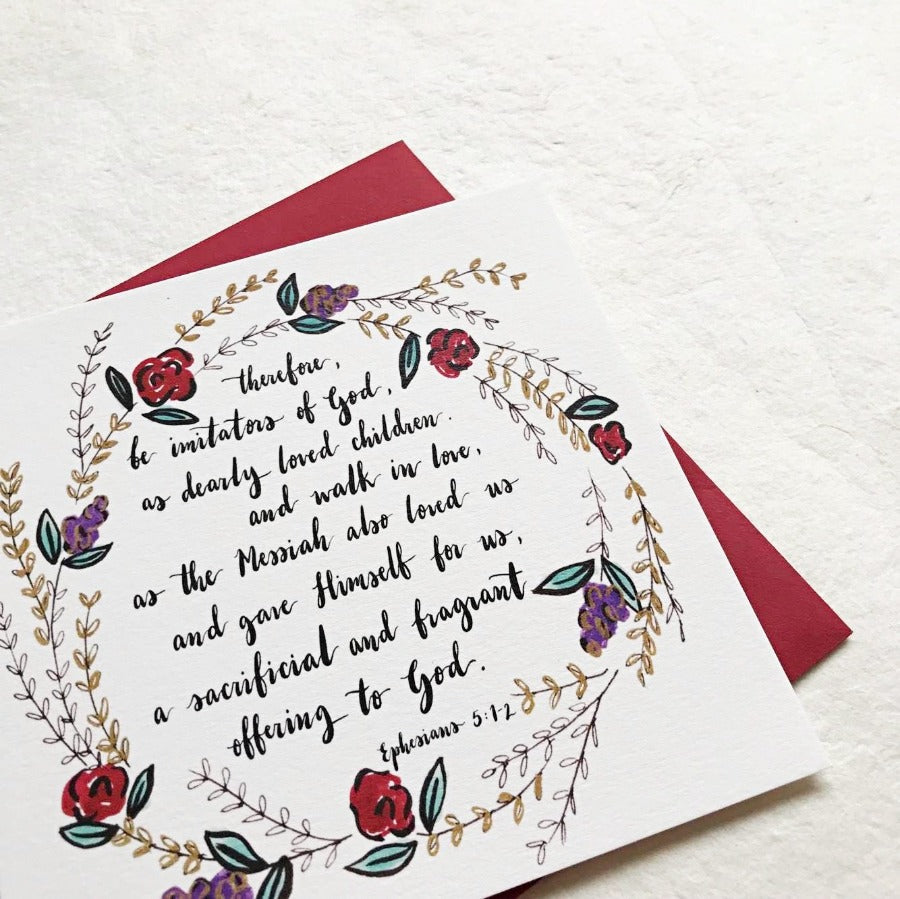 therefore,
be imitators of God,
as dearly loved children.
and walk in love,
as the Messiah also loved us
and gave Himself for us,
a sacrificial and fragrant
offering to God.
Ephesians 5:1-2